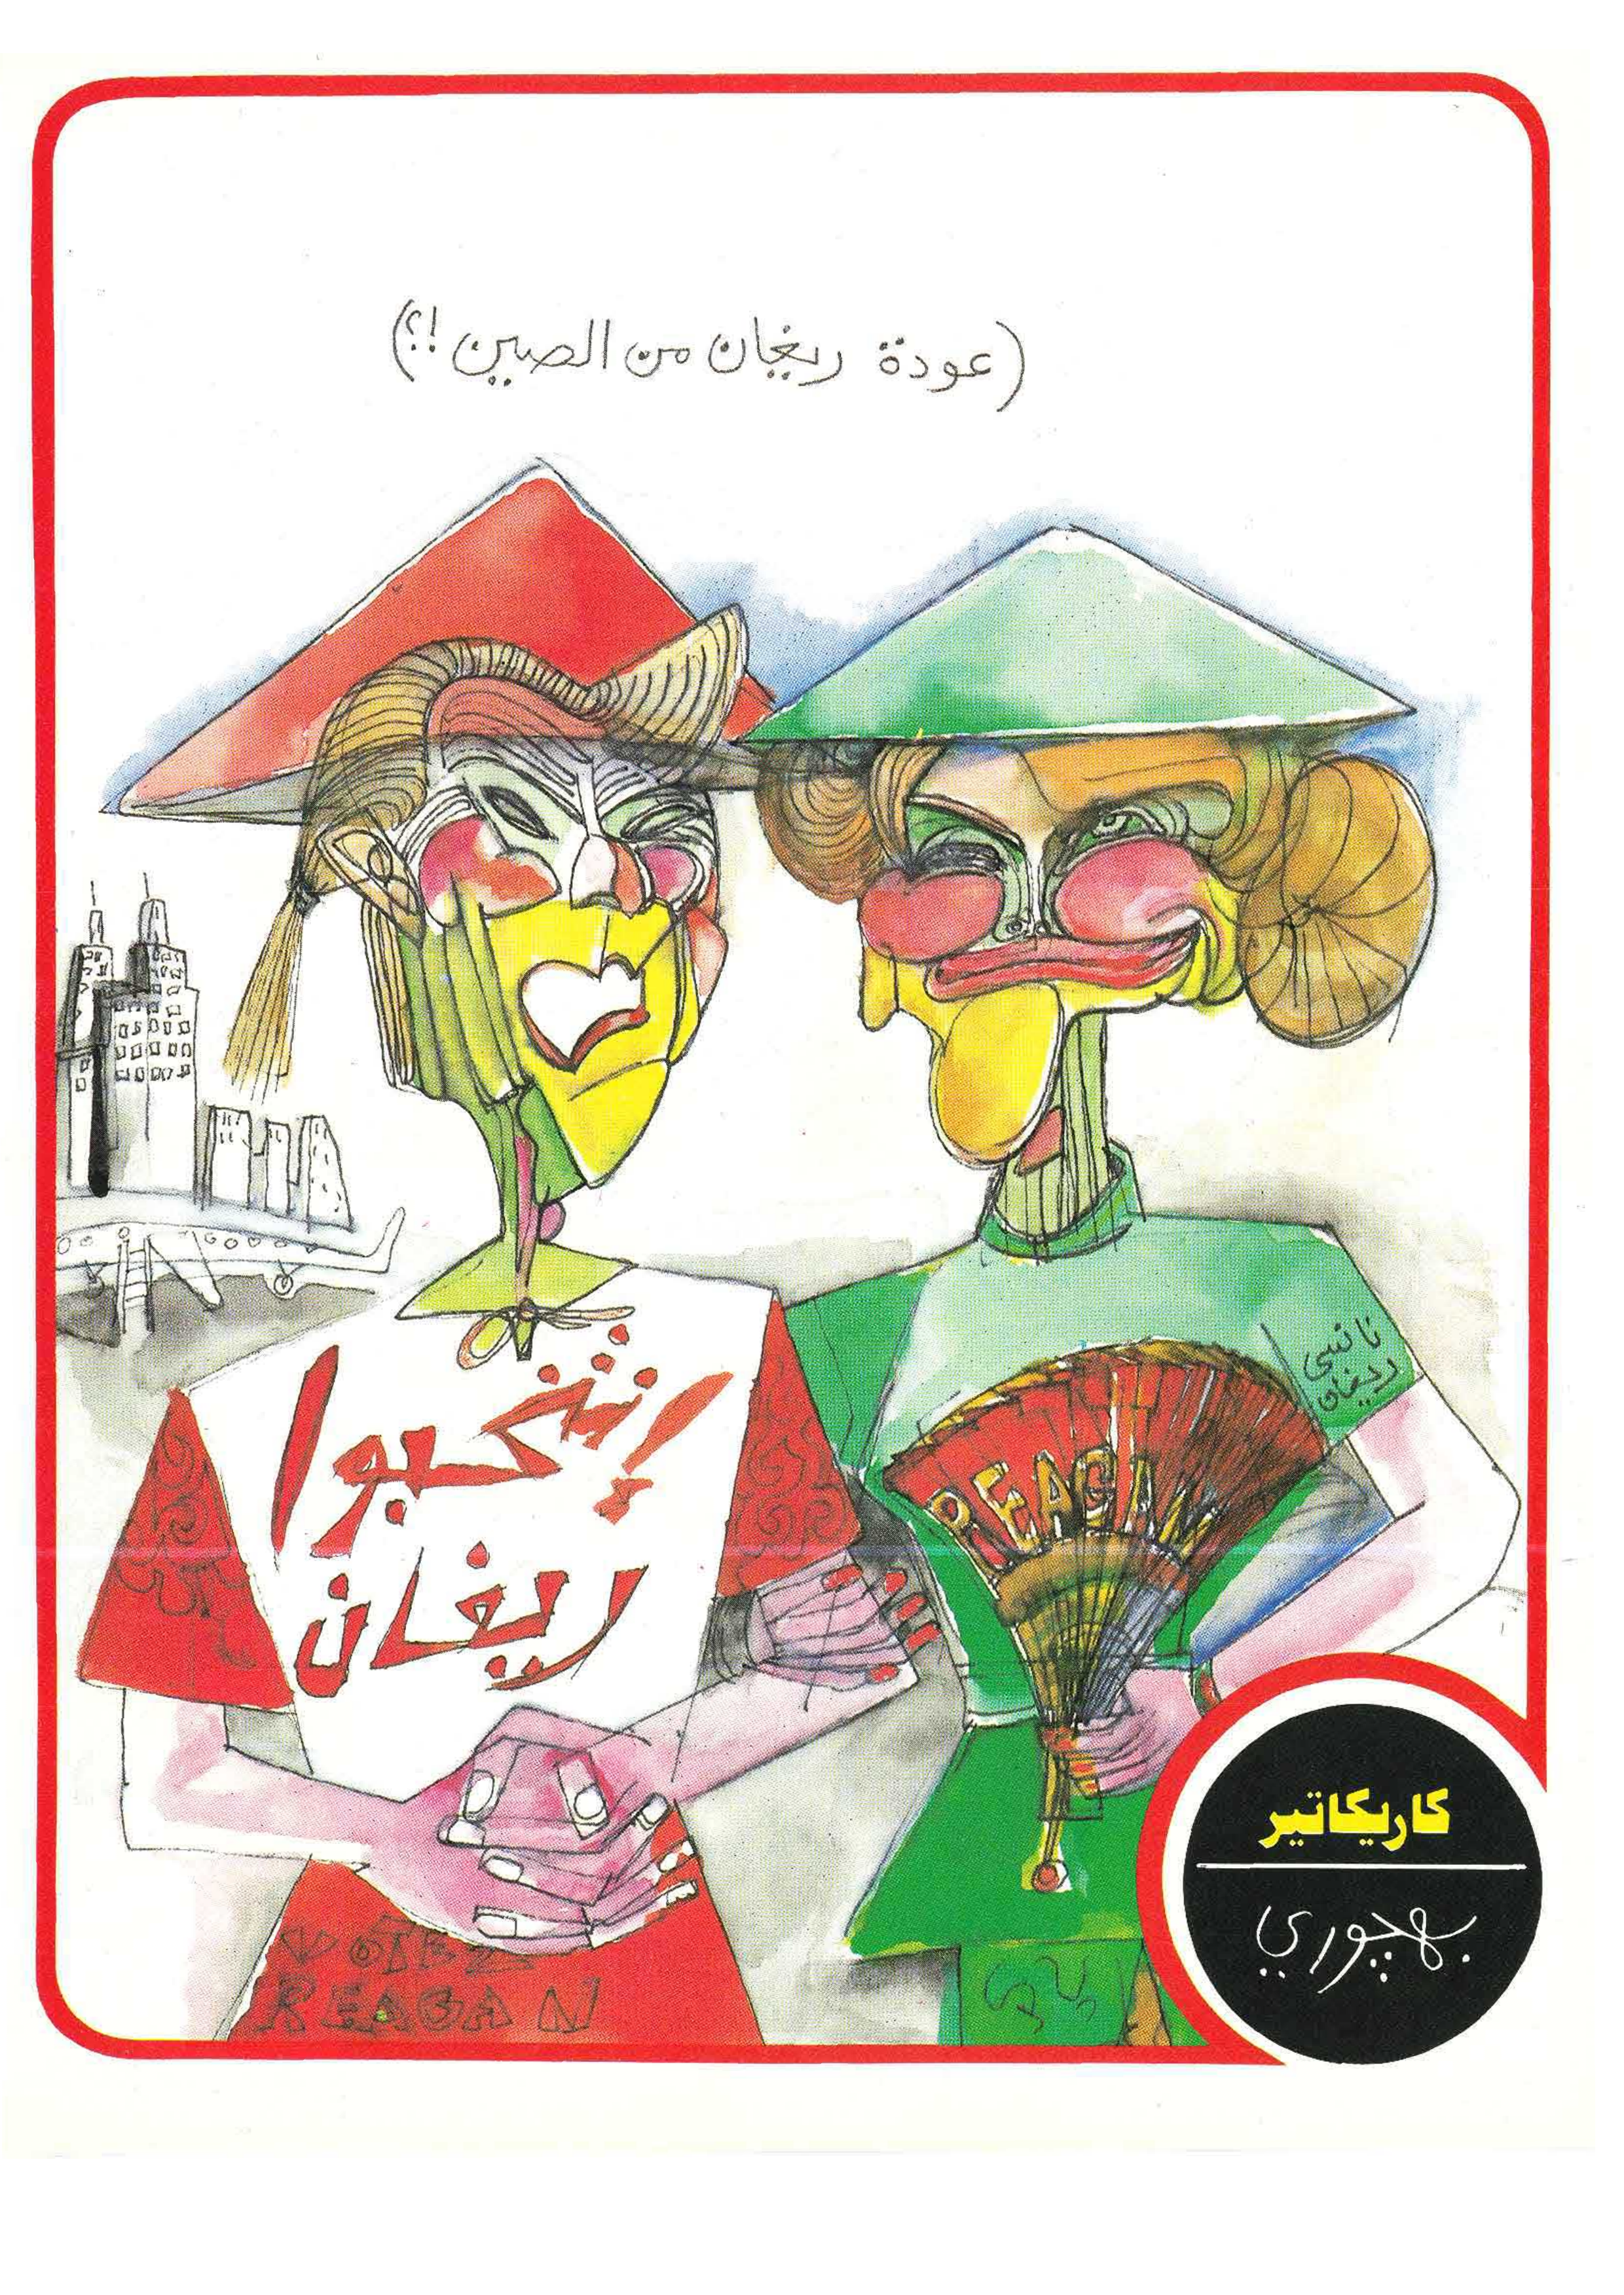 (عودة ريغان من الصين !؟)
إنتخبوا
ريغان
نانسي
ريغان
REAGAN
VOTEZ
REAGAN
كاريكاتير
بهجوري